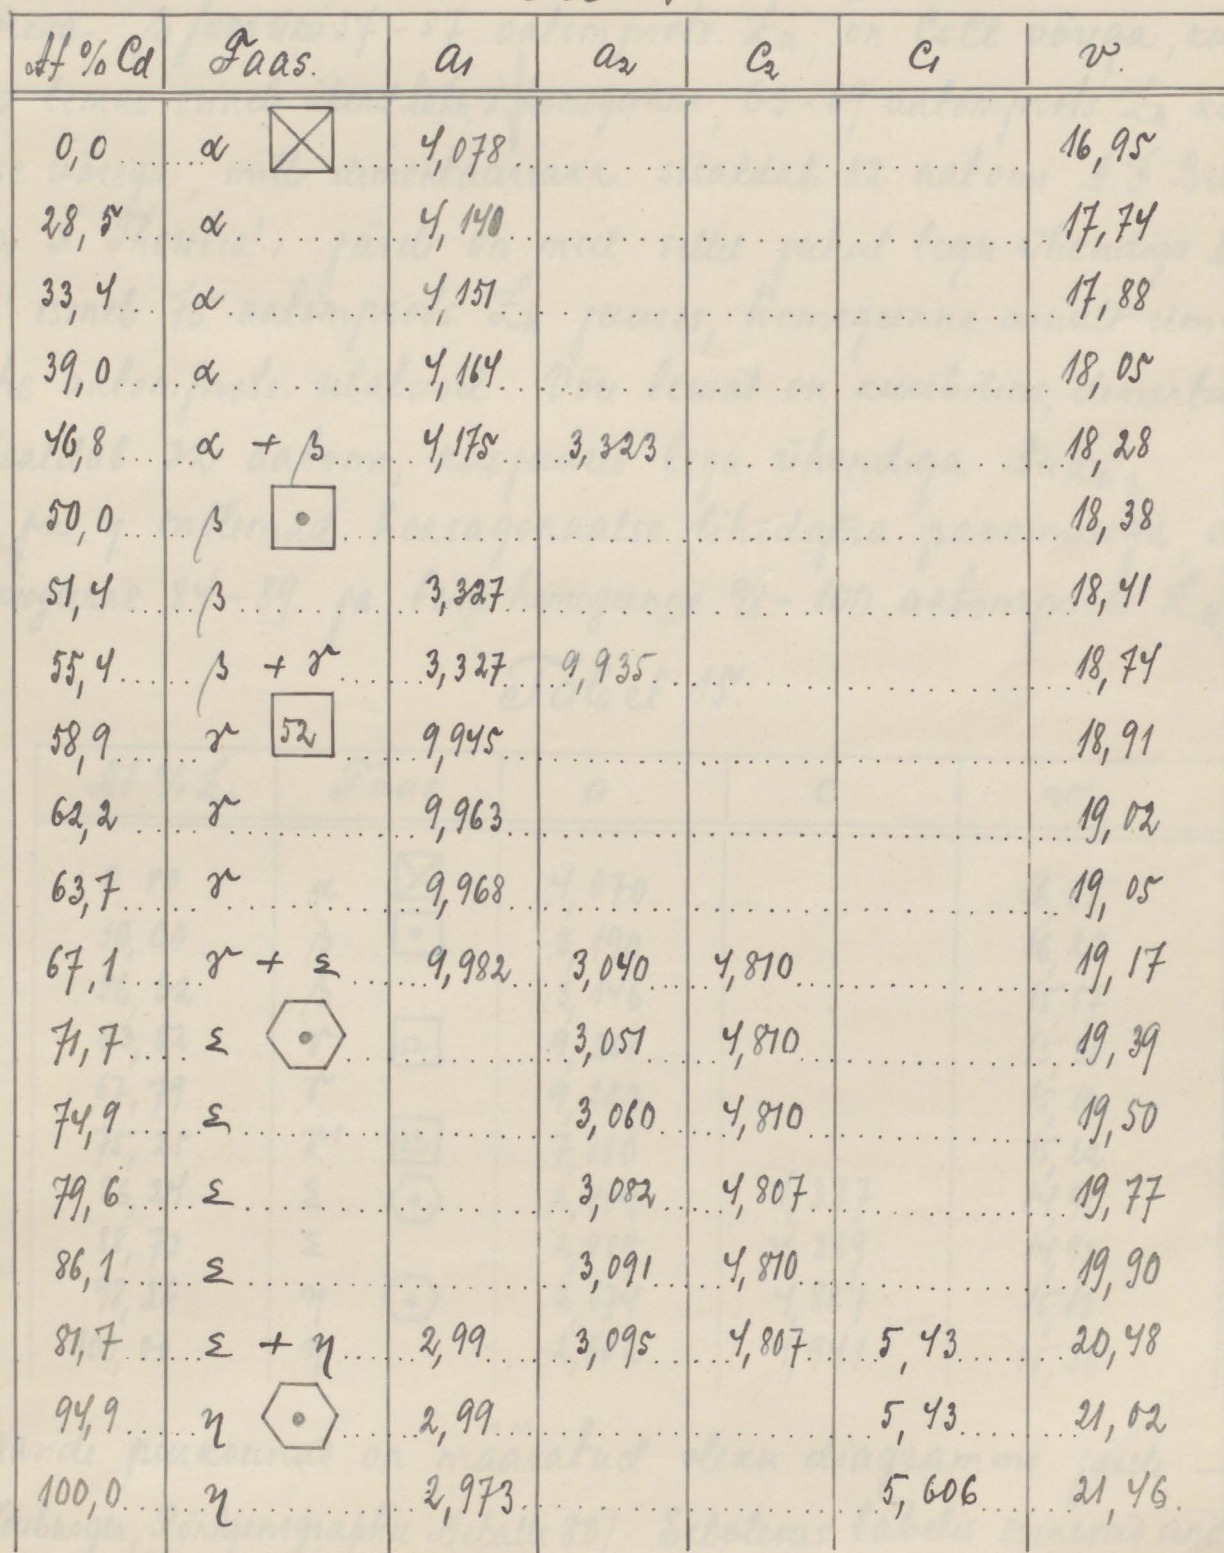 At % Cd Faas. a₁ a₂ c₂ c₁ v.
0,0 α 4,078 16,95
28,5 α 4,140 17,74
33,4 α 4,151 17,88
39,0 α 4,164 18,05
46,8 α + β 4,175 3,323 18,28
50,0 β 18,38
51,4 β 3,327 18,41
55,4 β + γ 3,327 9,935 18,74
58,9 γ 52 9,945 18,91
62,2 γ 9,963 19,02
63,7 γ 9,968 19,05
67,1 γ + ε 9,982 3,040 4,810 19,17
71,7 ε 3,051 4,810 19,39
74,9 ε 3,060 4,810 19,50
79,6 ε 3,082 4,807 19,77
86,1 ε 3,091 4,810 19,90
81,7 ε + η 2,99 3,095 4,807 5,43 20,48
94,9 η 2,99 5,43 21,02
100,0 η 2,973 5,606 21,46